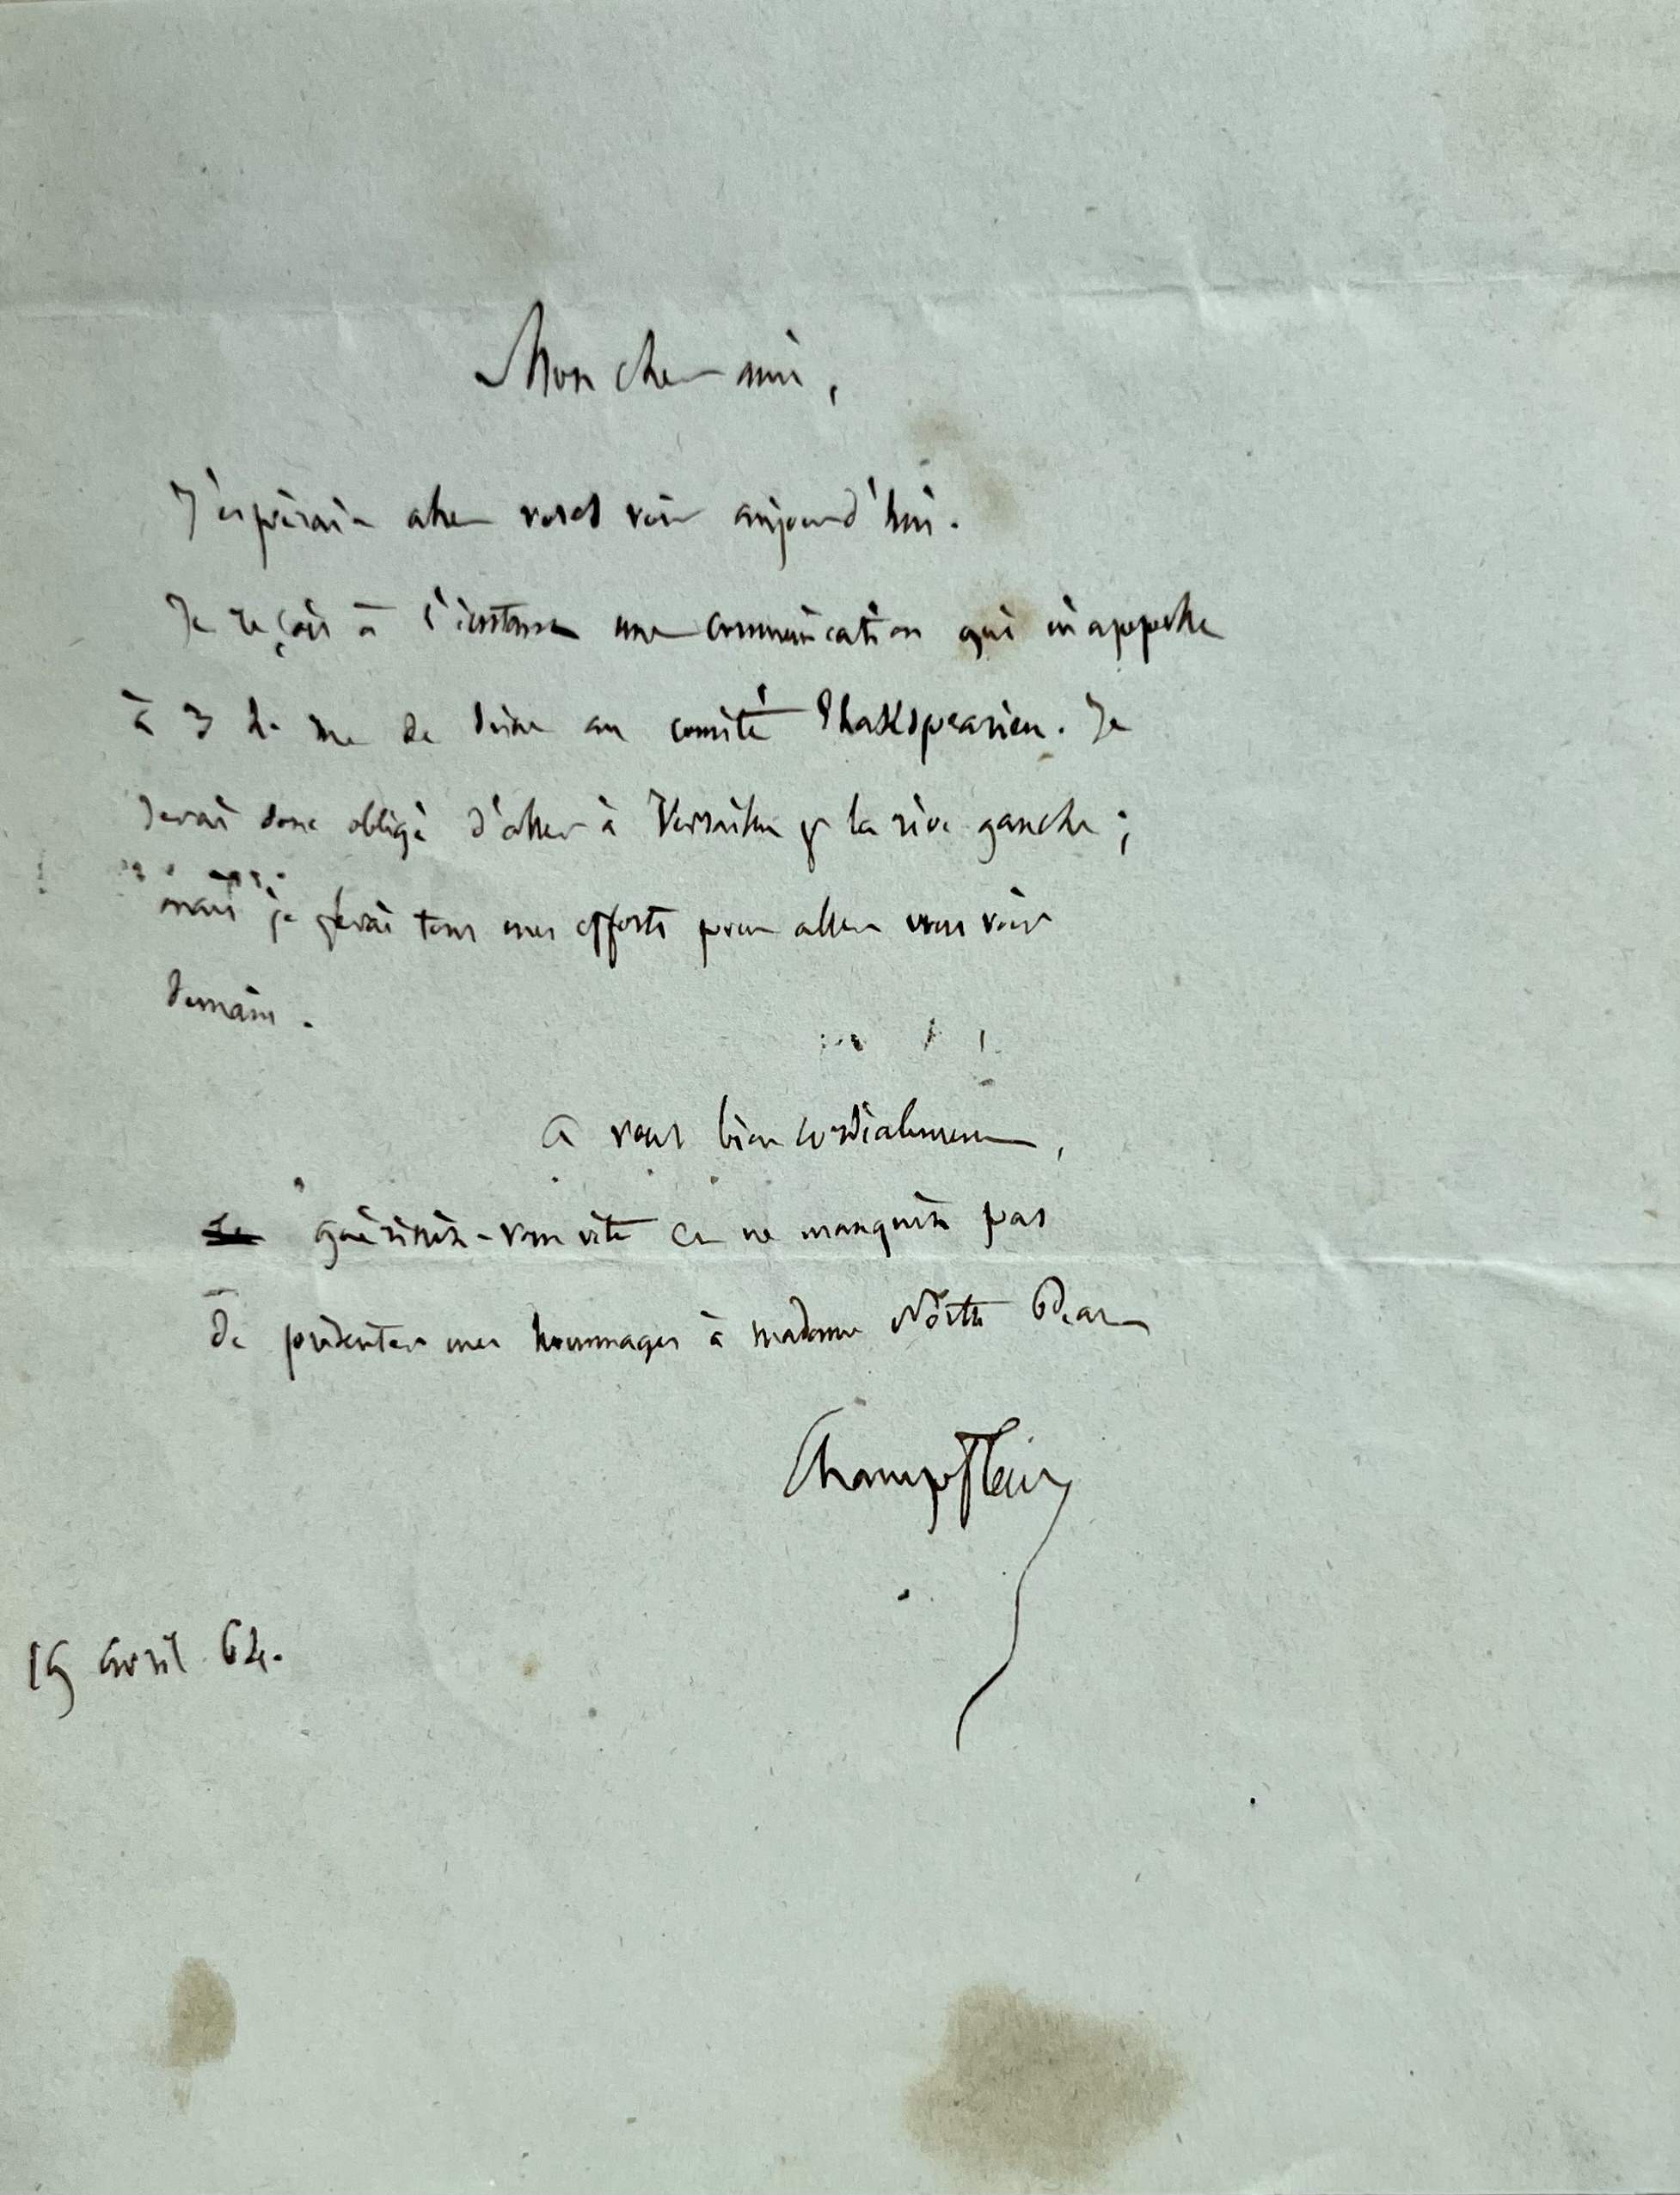 Mon cher ami,
J'espérais aller vous voir aujourd'hui.
Je reçois à l'instant une communication qui m'appelle
à 3 h. rue de Seine au comité Shakspearien. Je
serai donc obligé d'aller à Versailles p. la rive gauche ;
mais je ferai tous mes efforts pour aller vous voir
demain.
A vous bien cordialement,
guérissez-vous vite et ne manquez pas
de présenter mes hommages à madame North Peat
Champfleury
19 avril 64.